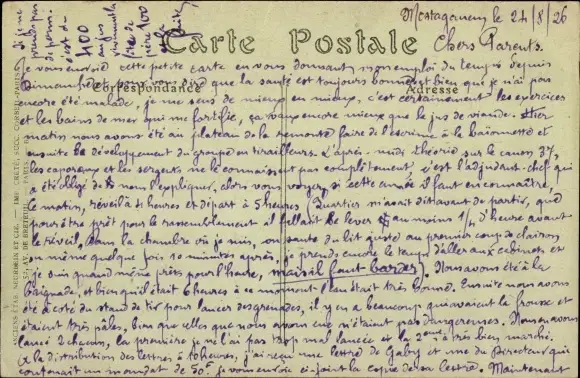 Mostaganem le 24/8/26
Carte Postale
Chers Parents.
Correspondance
Adresse
Je vous envoie cette petite carte en vous donnant mon emploi du temps depuis
Dimanche et pour vous dire que la santé est toujours bonne et bien que je n'ai pas
encore été malade, je me sens de mieux en mieux, c'est certainement les exercices
et les bains de mer qui me fortifie, ça vaut encore mieux que le jus de viande. Hier
matin nous avons été au plateau de la remonte faire de l'escrime à la baïonnette et
ensuite le développement du groupe en tirailleurs. L'après-midi théorie sur le canon 37,
les caporaux et les sergents ne le connaissent pas complètement, c'est l'adjudant-chef qui
a été obligé de nous l'expliquer, alors vous voyez si cette année il faut en connaître,
le matin, réveil à 4 heures et départ à 5 heures Quartier m'avait dit avant de partir, que
pour être prêt pour le rassemblement il fallait se lever au moins 1/4 d'heure avant
le réveil, dans la chambre où je suis, on saute du lit juste au premier coup de clairon
ou même quelque fois 10 minutes après, je prends encore le temps d'aller aux cabinets et
je suis quand même prêts pour l'heure, mais il faut barder. Nous avons été à la
baignade, et bien qu'il était 6 heures à ce moment l'eau était très bonne. Ensuite nous avons
été à côté du stand de tir pour lancer des grenades, il y en a beaucoup qui avaient la frousse et
étaient très pâles, bien que celles que nous avons eue n'étaient pas dangereuses. Nous en avons
lancé 2 chacun, la première je ne l'ai pas trop mal lancée et la 2ème a très bien marché.
A la distribution des lettres à 10 heures, j'ai reçu une lettre de Gaby et une du Directeur qui
contenait un mandat de 50f je vous envoie ci-joint la copie de sa lettre. Maintenant
Si je ne
prends pas
de perm.
c'est du
400
au jus
100
et la
fuite